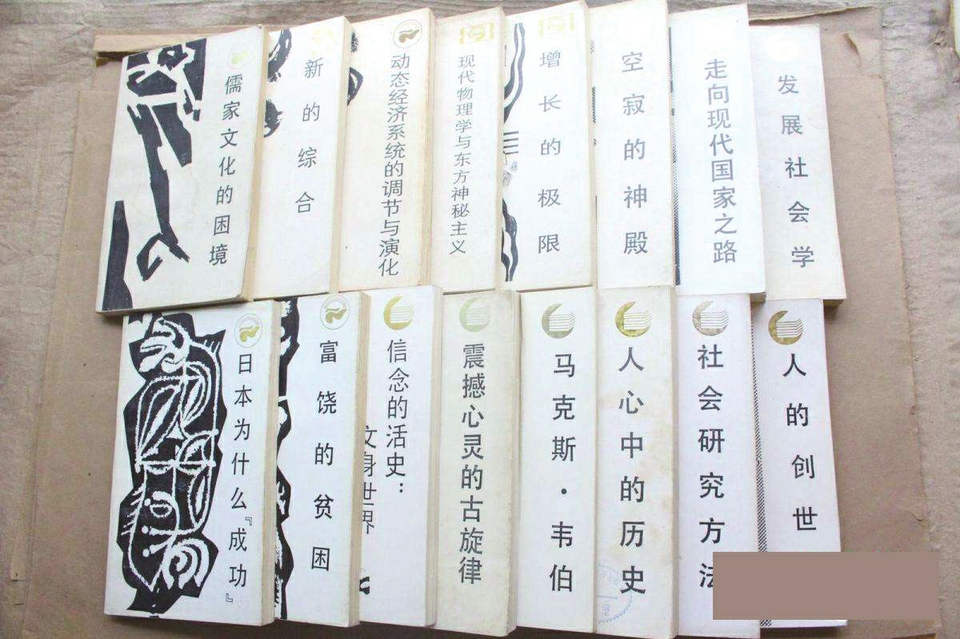 儒家文化的困境
新的综合
动态经济系统的调节与演化
现代物理学与东方神秘主义
增长的极限
空寂的神殿
走向现代国家之路
发展社会学
日本为什么『成功』
富饶的贫困
信念的活史：
文身世界
震撼心灵的古旋律
马克斯·韦伯
人心中的历史
社会研究方法
人的创世